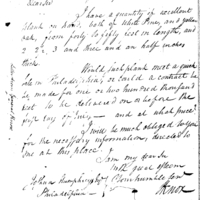 I have a quantity of excellent
plank on hand, both of White Pine, and yellow
from forty to fifty feet in length, and
2 2½, 3 and three and an half inches
thick.
Would such plank meet a quick
sale in Philadelphia, or could a contract be
made for one or two hundred thousand
feet to be delivered on or before the
first day of and at what price
I will be much obliged to you
for the necessary information, directed to
me at this place.
I am my dear Sir
with great esteem
Your humble Serv
HKnox
Joshua Humphreys
Philadelphia